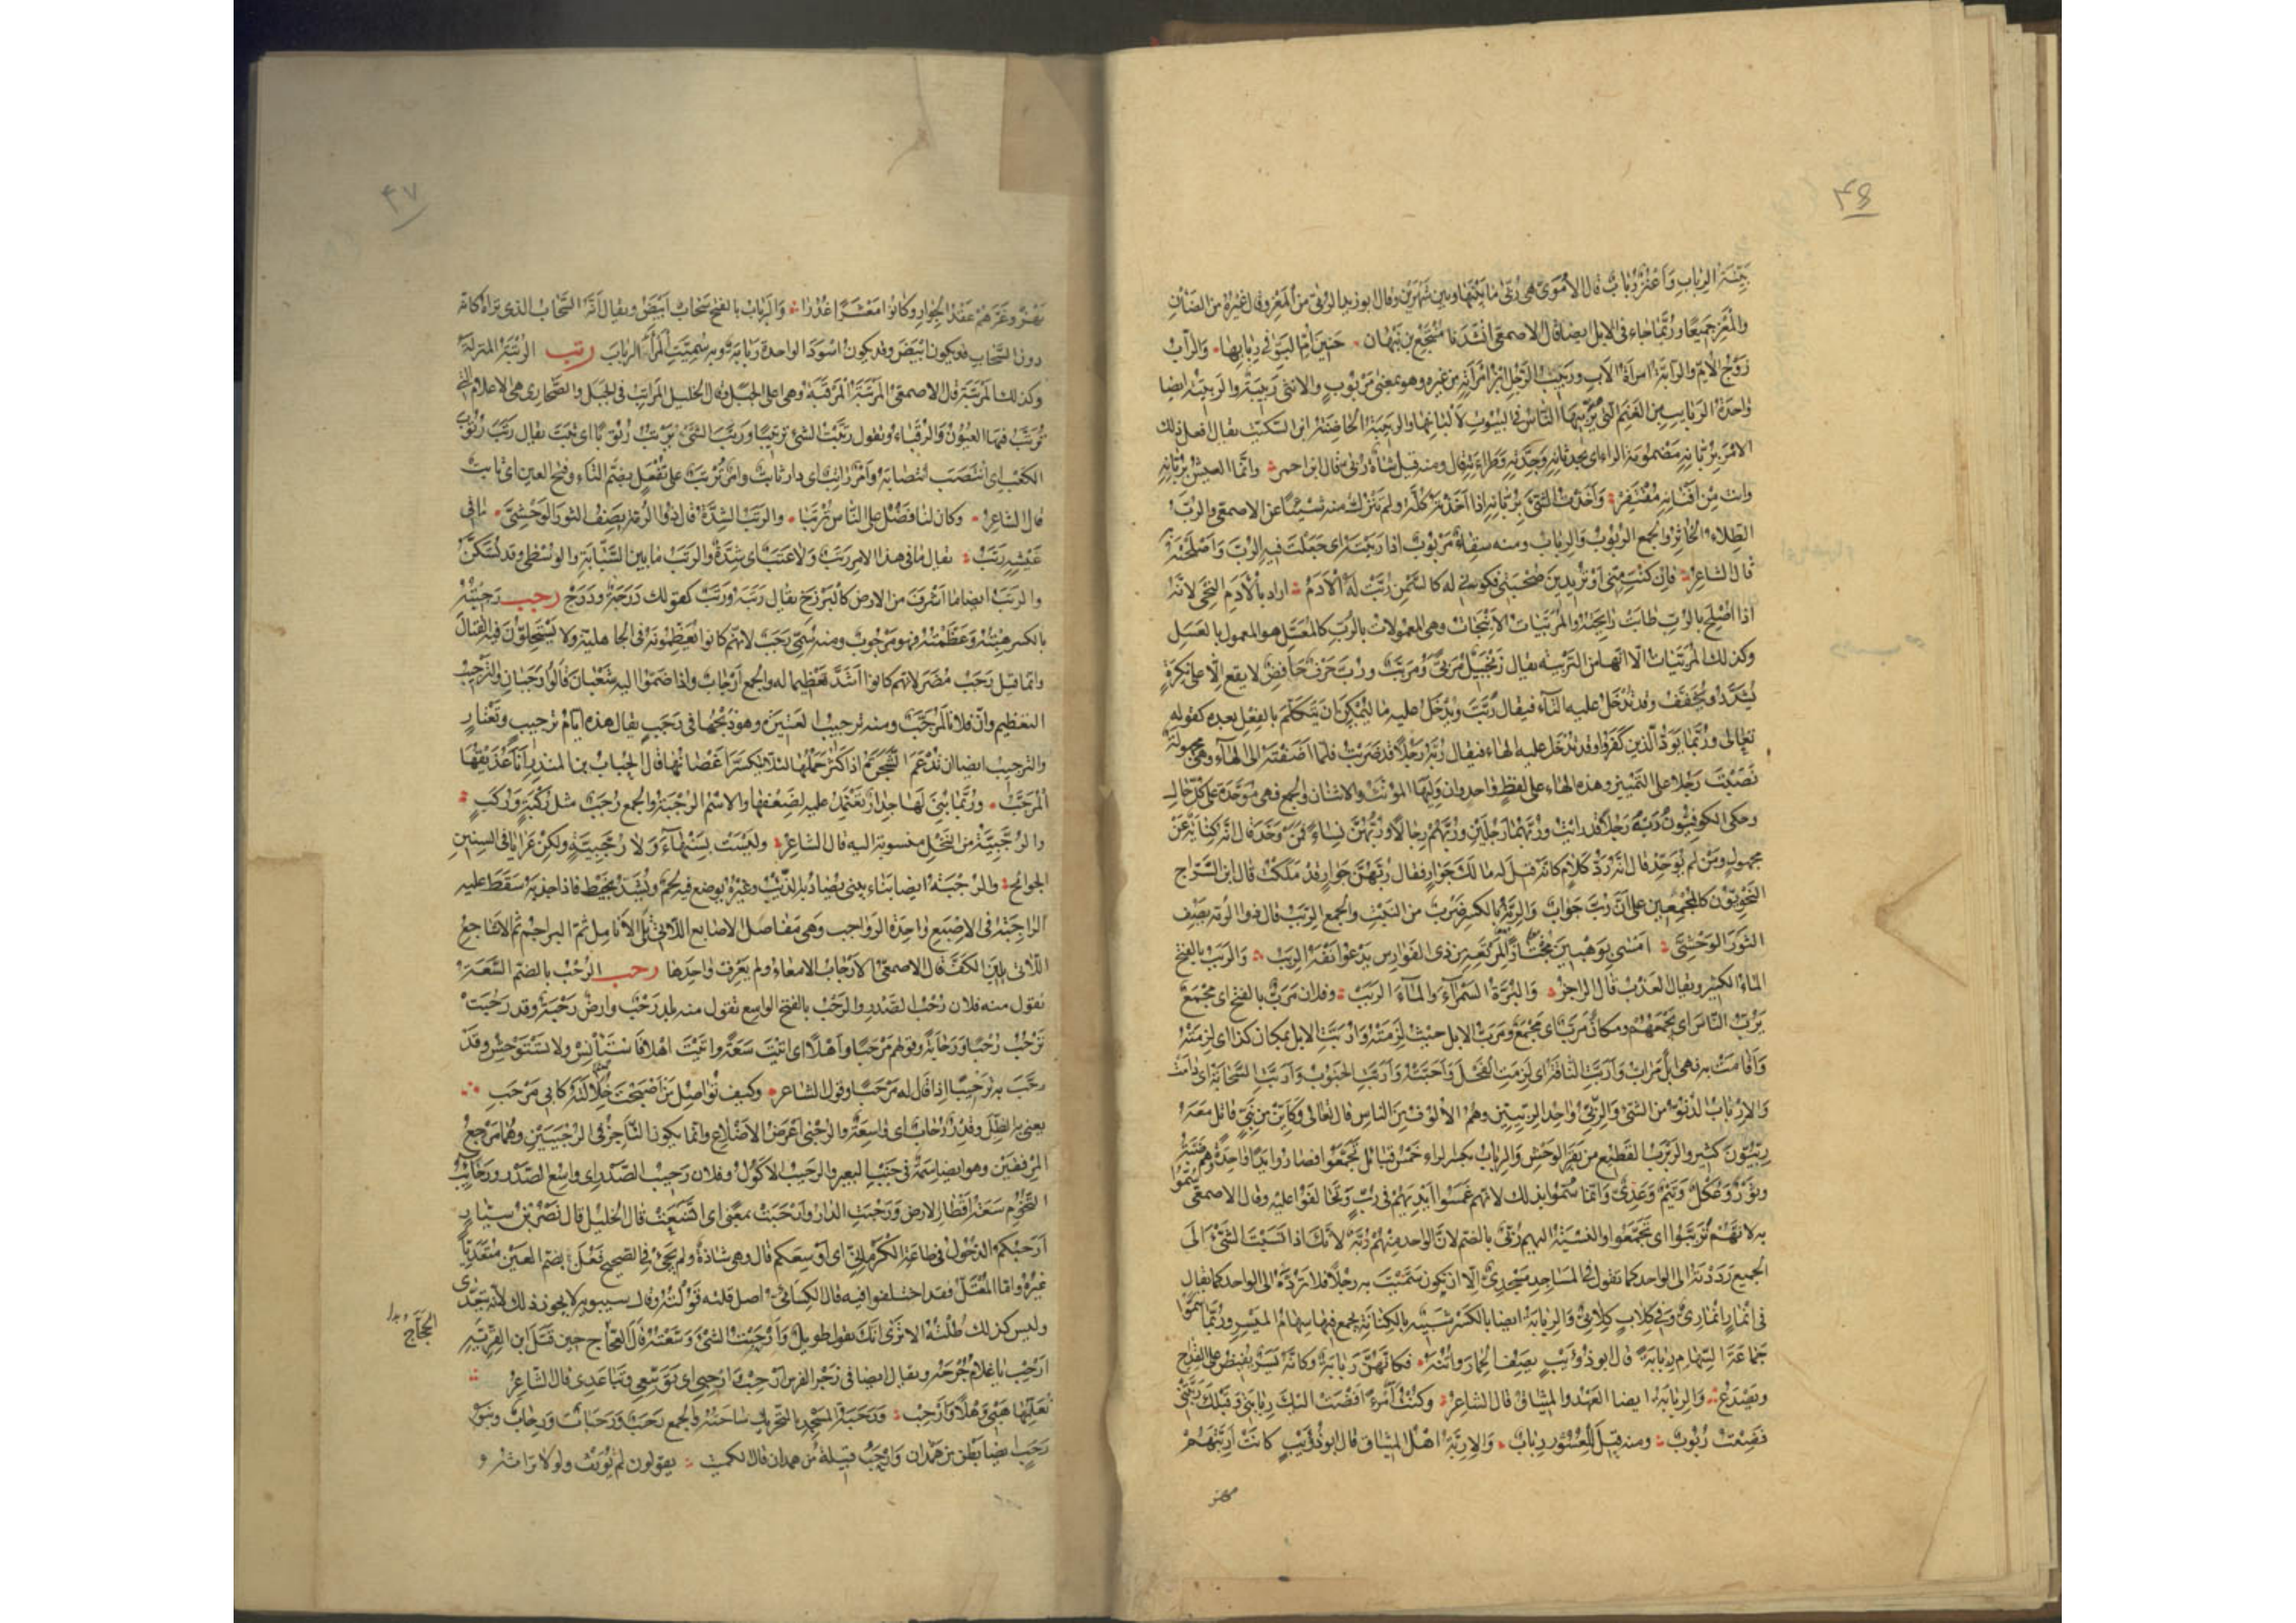 ۴۶
بَيِّنَةُ الرِبابِ وَاَعْنُزٌ رُبابٌ قال الاُمَوِىُّ هى رُبَّى ما بَيْنَها وبين شَهْرَيْنِ وقال ابوزيد الرُبَّى من المَعْزِ وقال غيرُهُ من الضَأْنِ
والمَعْزِ جَميعًا ورُبَّما جاء فى الابل ايضا قال الاصمعى انْشَدَنا مُنْتَجِعُ بن نَبْهان حَنينَ اُمِّ البَوِّ فى رِبابِها والرابُّ
زَوْجُ الاُمِّ والرابَّةُ امرأةُ الاَبِ ورَبيبُ الرَجُلِ ابْنُ امْرَأَتِهِ من غيره وهو بمعنى مَرْبُوبٍ والانثى رَبيبَةٌ والرَبيبَةُ ايضا
واحدةُ الرَبايبِ مِن الغَنَمِ التى يُرَبِّيها الناسُ فى البُيُوتِ لاَلْبانِها والرَبيبَةُ الحاضِنَةُ ابن السّكيت يقال افعل ذلك
الامْرَ بِرُبّانِهِ مَضْمُومَةَ الراء اى بحِدْثانِهِ وجِدَّتِهِ وطَراءَتِهِ قال ومنه قيل شاةٌ رُبَّى قال ابن احمر وانّما العيشُ بِرُبّانِهِ
وانت مِنْ اَفْنانِهِ مُفْتَقِرْ وَاَخَذْتُ الشىَّ بِرُبّانِهِ اذا اَخَذْتَهُ كُلَّهُ ولم تَتْرُكْ منه شَيْئًا عن الاصمعى والرُبُّ
الطِلاءُ الخاثِرُ والجمع الرُبُوبُ والرِبابُ ومنه سِقاءٌ مَرْبُوبٌ اذا رَبَبْتَهُ اى جَعَلْتَ فيهِ الرُبَّ وَاَصْلَحْتَهُ بِهِ
قال الشاعِرُ فإِن كنتِ مِنّى اَوْ تُرِيدينَ صُحْبَتى فكونى له كالسَّمْنِ رُبَّتْ لَهُ الاَدَمْ اراد بالاَدَمِ النِحْىَ لانَّهُ
اذا اُصْلِحَ بالرُبِّ طابَتْ رايحَتُهُ والمُرَبَّياتُ الاَنْبِجاتُ وهى المعمولات بالرُبِّ كالمُعَسَّلِ هو المعمول بالعَسَلِ
وكذلك المُرَبَّياتُ الّا انّها من التَرْبِيَةِ يقال زَنْجَبيلٌ مُرَبًّى ومُرَبَّبٌ ورُبَّ حَرْفٌ خافِضٌ لا يقع الّا على نَكِرَةٍ
يُشَدَّدُ ويُخَفَّفُ وقد تُدْخَلُ عليه التاءُ فيقال رُبَّتَ وتُدْخَلُ عليه ما ليُمْكِنَ ان يُتَكَلَّمَ بالفِعْلِ بعده كقوله
تعالى ورُبَّما يَوَدُّ الّذينَ كَفَرُوا وقد تُدْخَلُ عليه الهاءُ فيقال رُبَّهُ رَجُلًا قد ضَرَبْتُ فلمّا اَضَفْتَهُ الى الهاءِ وهى مجهولةٌ
نَصَبْتَ رَجُلا على التَمْييزِ وهذه الهاءُ على لفظٍ واحدٍ وان وَلِيَها المؤنّث والاثنان والجمع فهى مُوَحَّدَةٌ على كلّ حال
وحكى الكوفيّون رُبَّهُ رَجُلًا قد رايت ورُبَّهُما رَجُلَيْنِ ورُبَّهُم رِجالًا ورُبَّهُنَّ نِساءً فَمَنْ وَحَّدَ قال انّه كِنايَةٌ عَنْ
مجهولٍ ومَنْ لم يُوَحِّدْ قال انّه رَدُّ كَلامٍ كانّه قيل له مالك جَوارٍ فقال رُبَّهُنَّ جَوارٍ قَدْ مَلَكْتُ قال ابن السَّرّاج
النَحْوِيّونَ كالمُجْمِعِين على اَنَّ رُبَّ جَوابٌ والرِبَّةُ بالكسر ضَرْبٌ من النَبْتِ والجمع الرِبَبُ قال ذوالرُمّة يصف
الثَوْرَ الوَحْشِىَّ اَمْسَى بِوَهْبِينَ مُجْتازًا لِمَرْتَعِهِ من ذى الفوارِسِ يَدْعو اَنْفَهُ الرِبَبُ والرَبَبُ بالفتح
الماءُ الكثير ويقال العَذْبُ قال الراجزُ والبُرَّةُ السَمْراءُ والماءُ الرَبَبْ وفلان مَرَبٌّ بالفتح اى مَجْمَعٌ
يَرُبُّ الناسَ اى يَجْمَعُهُم ومكانٌ مَرَبٌّ اى مَجْمَعٌ ومَرَبُّ الابل حيث لَزِمَتْهُ وَاَرَبَّتِ الابل بمكان كذا اى لَزِمَتْهُ
وَاَقامَتْ به فهى اِبِلٌ مَرابُّ وَاَرَبَّتِ الناقَةُ اى لَزِمَتِ الفَحْلَ وَاَحَبَّتْهُ وَاَرَبَّتِ الجَنُوبُ وَاَرَبَّتِ السَّحابَةُ اى دامَتْ
والاِرْبابُ الدُنُوُّ من الشىءِ والرِبِّىُّ واحِدُ الرِبِّيّينَ وهُم الاُلُوفُ مِنَ الناسِ قال تعالى وكَاَيِّنْ مِن نَبِىٍّ قاتَلَ مَعَهُ
رِبِّيُّونَ كثير والرَبْرَبُ القَطِيعُ من بَقَرِ الوَحْشِ والرِبابُ بكسر الراء خَمْسُ قبائل تَجَمَّعُوا فصاروا يَدًا واحِدَةً وهم ضَبَّةُ
وثَوْرٌ وعُكْلٌ وتَيْمٌ وعَدِىٌّ وانّما سُمُّوا بذلك لانّهم غَمَسُوا اَيْدِيَهُم فى رُبٍّ وتَحالَفُوا عليه وقال الاصمعى سُمُّوا
به لانَّهُمْ تَرَبَّبُوا اى تَجَمَّعُوا والنِسْبَةُ اليهم رُبِّىٌّ بالضم لانّ الواحد مِنْهُم رُبَّةٌ لاَنَّكَ اذا نَسَبْتَ الشىءَ الى
الجميع رَدَدْتَهُ الى الواحد كما تقول فى المَساجِدِ مَسْجِدِىٌّ الّا ان تكون سَمَّيْتَ به رجلًا فلا تَرُدَّهُ الى الواحد كما يقال
فى اَنْمارٍ اَنْمارِىٌّ وفى كِلابٍ كِلابِىٌّ والرِبابَةُ ايضا بالكسر شَبيهَةٌ بالكِنانَةِ يجمع فيها سِهامُ المَيْسِرِ ورُبَّما سَمَّوْا
جَماعَةَ السِّهامِ رِبابَةً قال ابوذُؤَيبٍ يصف الحِمارَ واُتُنَهُ فكانَّهُنَّ رِبابَةٌ وكانّه يَسَرٌ يُفيضُ على القِداحِ
ويَصْدَعُ والرِبابَةُ ايضا العَهْدُ والميثاق قال الشاعرُ وكنتُ امْرَءًا اَفْضَتْ اليكَ رِبابَتى وقَبْلَكَ رَبَّتْنى
فضِعْتُ رُبُوبُ ومنه قيل للعُشُورِ رِبابٌ والاَرِبَّةُ اهل الميثاق قال ابوذُؤَيبٍ كانَتْ اَرِبَّتَهُمْ
۴۷
بَهْزٌ وغَرَّهُمْ عَقْدُ الجِوارِ وكانُوا مَعْشَرًا غُدُرا والرَبابُ بالفتح سَحابٌ اَبْيَضُ ويقال انّه السَّحابُ الذى تراه كانّه
دون السَّحابِ قد يكون اَبْيَضَ وقد يكون اَسْوَدَ الواحدة رَبابَةٌ وبه سُمِّيَتِ المَرْأَةُ الرَبابَ رتب الرُتْبَةُ المنزلة
وكذلك المَرْتَبَةُ قال الاصمعى المَرْتَبَةُ المَرْقَبَةُ وهى اعلى الجَبَلِ وقال الخليل المَراتِبُ فى الجَبَلِ والصَّحارِى هى الاَعْلامُ التى
تُرَتَّبُ فيها العُيُونُ والرُقَباءُ وتقول رَتَّبْتُ الشىءَ ترتيبًا ورَتَبَ الشىءُ يَرْتُبُ رُتُوبًا اى ثَبَتَ يقال رَتَبَ رُتُوبَ
الكَعْبِ اى انْتَصَبَ انتصابَهُ وَاَمْرٌ راتِبٌ اى دارٌّ ثابتٌ وامرٌ تُرْتَبٌ على تُفْعَلٍ بضمّ التاء وفتح العين اى ثابتٌ
قال الشاعرُ وكان لنا فَضْلٌ على النّاسِ تُرْتَبا والرَتَبُ الشِدَّةُ قال ذوالرُمّة يصف الثورَ الوَحْشِىَّ ما فى
عَيْشِهِ رَتَبُ يقال ما فى هذا الامر رَتَبٌ ولا عَتَبٌ اى شِدَّةٌ والرَتَبُ ما بين السَّبّابَةِ والوُسْطى وقد تُسَكَّنُ
والرَتَبُ ايضا ما اَشْرَفَ من الارض كالبَرْزَخِ يقال رَتَبَةٌ ورَتَبٌ كقولك دَرَجَةٌ ودَرَجٌ رجب رَجِبْتُهُ
بالكسر هِبْتُهُ وعَظَّمْتُهُ فهو مَرْجُوبٌ ومنه سُمِّىَ رَجَبٌ لانّهم كانوا يُعَظِّمُونَهُ فى الجاهلية ولا يَسْتَحِلّونَ فيه القِتالَ
وانّما قيل رَجَبُ مُضَرَ لانّهم كانوا اَشَدَّ تعظيما له والجمع اَرْجابٌ واذا ضَمُّوا اليه شَعْبانَ قالوا رَجَبانِ والتَرْجيبُ
التعظيم وانّ فلانًا لمُرَجَّبٌ ومنه ترجيبُ العَتيرَةِ وهو ذَبْحُها فى رَجَبٍ يقال هذه ايّامُ تَرْجيبٍ وتَعْتارٍ
والترجيب ايضا ان تُدْعَمَ الشَّجَرَةُ اذا كَثُرَ حَمْلُها لئلّا تنكسرَ اَغْصانُها قال الحُباب بن المنذر اَنا عُذَيْقُها
المُرَجَّبُ ورُبَّما بُنِىَ لَها جِدارٌ تَعْتَمِدُ عليه لضَعْفِها والاسم الرُجْبَةُ والجمع رُجَبٌ مثل رُكْبَةٍ ورُكَبٍ
والرُجَّبِيَّةُ من النَّخْلِ منسوبة اليه قال الشاعرُ ولَيْسَتْ بسَنْهاءَ ولا رُجَّبِيَّةٍ ولكِنْ عَرايا فى السنينِ
الجوائح والرُجْبَةُ ايضا بناء يبنى يُصادُ به الذِئْبُ وغيرُهُ يوضع فيه لحمٌ ويُشَدُّ بخيطٍ فاذا جذبه سَقَطَ عليه
الراجِبَةُ فى الاِصْبَعِ واحدة الرَواجِبِ وهى مفاصل الاصابع اللّاتى تَلِى الاَنامِلَ ثمّ البراجِمُ ثم الاَشاجِعُ
اللّاتى يَلينَ الكَفَّ قال الاصمعى الاَرْجابُ الامعاءُ ولم يَعْرِفْ واحِدَها رحب الرُحْبُ بالضم السَّعَةُ
تقول منه فلان رُحْبُ الصَّدْرِ والرَحْبُ بالفتح الواسع تقول منه بلدٌ رَحْبٌ وارضٌ رَحْبَةٌ وقد رَحُبَتْ
تَرْحُبُ رُحْبًا ورَحابَةً وقولهم مَرْحَبًا وَاَهْلًا اى اَتَيْتَ سَعَةً واَتَيْتَ اهلا فَاسْتَأْنِسْ ولا تَسْتَوْحِشْ وقد
رَحَّبَ به تَرْحيبًا اذا قال له مَرْحَبًا وقول الشاعر وكيف تُواصِلُ مَن اَصْبَحَتْ خِلالَتُهُ كابى مَرْحَبِ
يعنى به الظِلَّ وقِدْرٌ رُحابٌ اى واسِعَةٌ والرُحْبى اَعْرَضُ الاَضْلاعِ وانّما يكون الناحِزُ فى الرُحْبَيَيْنِ وهُما مَرْجِعُ
المِرْفَقَيْنِ وهو ايضا سِمَةٌ فى جَنْبِ البعير والرَحيبُ الاَكُولُ وفلان رَحيبُ الصَّدْرِ اى واسع الصَّدْر ورَحائِبُ
التُّخُومِ سَعَةُ اَقْطارِ الارض ورَحُبَتِ الدار وَاَرْحَبَتْ بمعنًى اى اتَّسَعَتْ قال الخليل قال نَصْرُ بن سَيّار
اَرَحُبَكُم الدُخُولُ فى طاعة الكَرْمانِىِّ اى اَوَسِعَكم قال وهى شاذّةٌ ولم يجئ فى الصحيح فَعُلَ بضم العين متعدّيًا
غيره وامّا المُعْتَلُّ فقد اختلفوا فيه قال الكسائى اصل قُلْتُهُ قَوُلْتُهُ وقال سيبويه لا يجوز ذلك لانّه يتعدّى
وليس كذلك طُلْتُهُ الا ترى انّك تقول طويلٌ وَاَرْحَبْتُ الشىءَ وَسَّعْتُهُ قال العجّاج حين قَتَلَ ابن القِرِّيَّةِ
الحجّاج
اَرْحِبْ يا غلامُ جُرْحَهُ ويقال ايضا فى زَجْرِ الفرس اَرْحِبْ وَاَرْحِبِى اى تَوَسَّعِى وتَباعَدِى قال الشاعرُ
نُعَلِّمُها هَبِى وَهَلًا وَاَرْحِبْ ورَحَبَةُ المسجد بالتحريك ساحَتُهُ والجمع رَحَبٌ ورَحَباتٌ ورِحابٌ وبنو
رَحَبٍ ايضا بَطْنٌ من هَمْدان وَاَرْحَبُ قبيلةٌ من همدان قال الكميت يقولون لم يُورَثْ ولولا تراثه